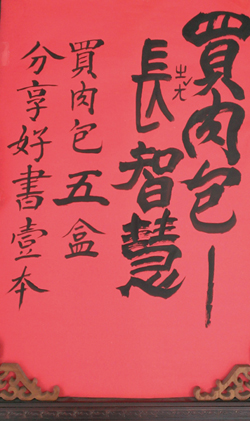 買肉包—
長ㄓㄤˇ智慧
買肉包五盒
分享好書壹本